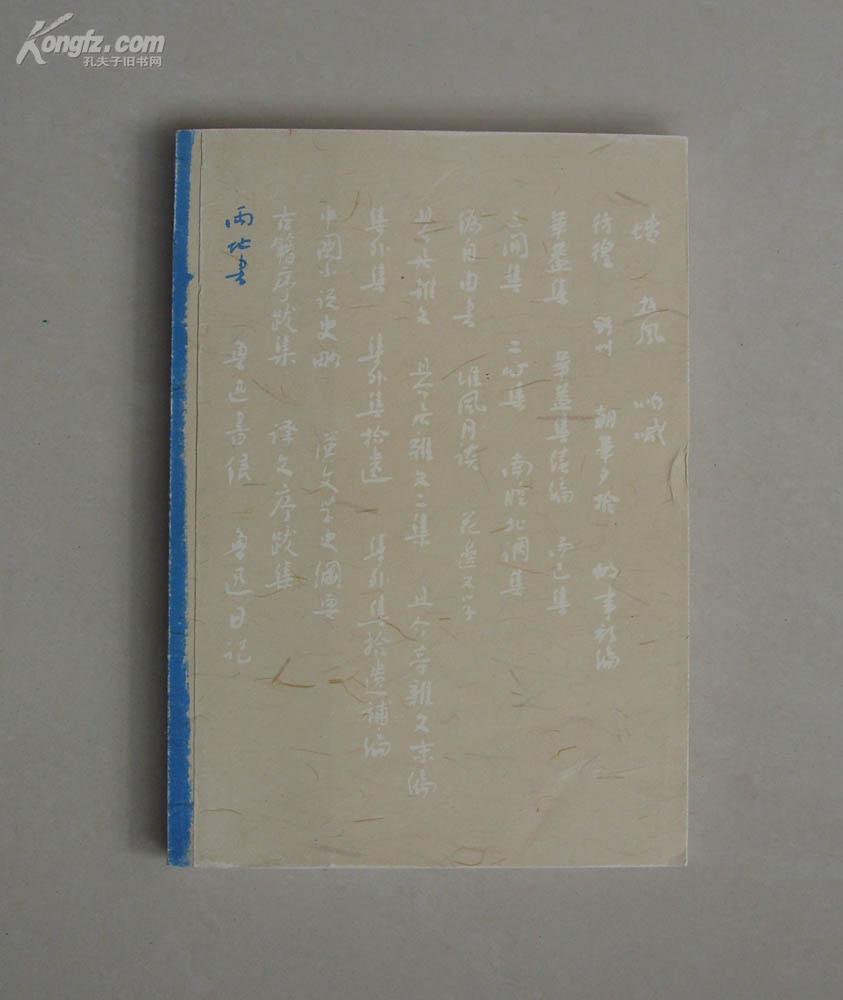 Kongfz.com
孔夫子旧书网
墳 热风 呐喊
彷徨 野草 朝華夕拾 故事新编
華蓋集 華蓋集續编 而已集
三闲集 二心集 南腔北调集
伪自由書 准风月谈 花边文学
且介亭雜文 且介亭雜文二集 且介亭雜文末编
集外集 集外集拾遗 集外集拾遗補编
中国小说史略 漢文学史綱要
古籍序跋集 译文序跋集
两地書 鲁迅書信 鲁迅日记